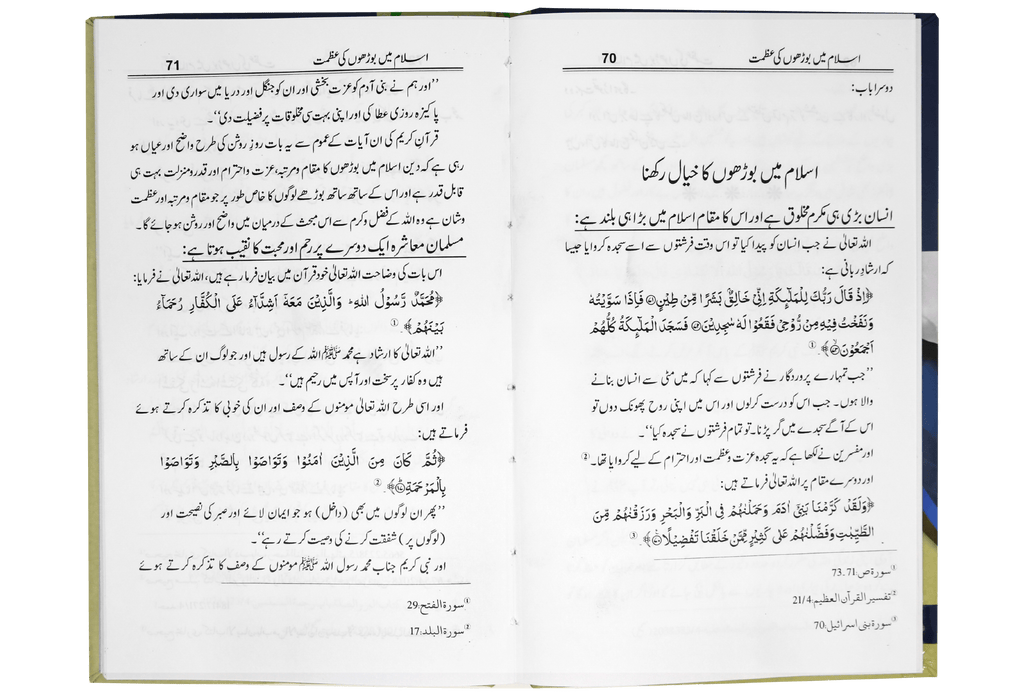 اسلام میں بوڑھوں کی عظمت
70
دوسرا باب:
اسلام میں بوڑھوں کا خیال رکھنا
انسان بڑی ہی مکرم مخلوق ہے اور اس کا مقام اسلام میں بڑا ہی بلند ہے:
اللہ تعالیٰ نے جب انسان کو پیدا کیا تو اس وقت فرشتوں سے اسے سجدہ کروایا جیسا
کہ ارشادِ ربانی ہے:
﴿اِذْ قَالَ رَبُّكَ لِلْمَلٰٓىِٕكَةِ اِنِّیْ خَالِقٌۢ بَشَرًا مِّنْ طِیْنٍ۝۷۱ فَاِذَا سَوَّیْتُهٗ
وَ نَفَخْتُ فِیْهِ مِنْ رُّوْحِیْ فَقَعُوْا لَهٗ سٰجِدِیْنَ۝۷۲ فَسَجَدَ الْمَلٰٓىِٕكَةُ كُلُّهُمْ
اَجْمَعُوْنَ۝۷۳﴾. ①
’’جب تمہارے پروردگار نے فرشتوں سے کہا کہ میں مٹی سے انسان بنانے
والا ہوں۔ جب اس کو درست کرلوں اور اس میں اپنی روح پھونک دوں تو
اس کے آگے سجدے میں گر پڑنا۔ تو تمام فرشتوں نے سجدہ کیا‘‘۔
اور مفسرین نے لکھا ہے کہ یہ سجدہ عزت و عظمت اور احترام کے لیے کروایا تھا۔ ②
اور دوسرے مقام پر اللہ تعالیٰ فرماتے ہیں:
﴿وَلَقَدْ كَرَّمْنَا بَنِیْۤ اٰدَمَ وَحَمَلْنٰهُمْ فِی الْبَرِّ وَالْبَحْرِ وَرَزَقْنٰهُمْ مِّنَ
الطَّیِّبٰتِ وَفَضَّلْنٰهُمْ عَلٰی كَثِیْرٍ مِّمَّنْ خَلَقْنَا تَفْضِیْلًا۝۷۰﴾. ③
① سورة ص: 71۔73
② تفسیر القرآن العظیم: 21/4
③ سورة بنی اسرائیل: 70
اسلام میں بوڑھوں کی عظمت
71
’’اور ہم نے بنی آدم کو عزت بخشی اور ان کو جنگل اور دریا میں سواری دی اور
پاکیزہ روزی عطا کی اور اپنی بہت سی مخلوقات پر فضیلت دی‘‘۔
قرآنِ کریم کی ان آیات کے عموم سے یہ بات روزِ روشن کی طرح واضح اور عیاں ہو
رہی ہے کہ دینِ اسلام میں بوڑھوں کا مقام و مرتبہ، عزت و احترام اور قدر و منزلت بہت ہی
قابل قدر ہے اور اس کے ساتھ ساتھ بوڑھے لوگوں کا خاص طور پر جو مقام و مرتبہ اور عظمت
و شان ہے وہ اللہ کے فضل و کرم سے اس مبحث کے درمیان میں واضح اور روشن ہو جائے گا۔
مسلمان معاشرہ ایک دوسرے پر رحم اور محبت کا نقیب ہوتا ہے:
اس بات کی وضاحت اللہ تعالیٰ خود قرآن میں بیان فرما رہے ہیں، اللہ تعالیٰ نے فرمایا:
﴿مُحَمَّدٌ رَّسُوْلُ اللّٰهِ ؕ وَ الَّذِیْنَ مَعَهٗۤ اَشِدَّآءُ عَلَی الْكُفَّارِ رُحَمَآءُ
بَیْنَهُمْ﴾. ①
’’اللہ تعالیٰ کا ارشاد ہے محمد ﷺ اللہ کے رسول ہیں اور جو لوگ ان کے ساتھ
ہیں وہ کفار پر سخت اور آپس میں رحیم ہیں‘‘۔
اور اسی طرح اللہ تعالیٰ مومنوں کے وصف اور ان کی خوبی کا تذکرہ کرتے ہوئے
فرماتے ہیں:
﴿ثُمَّ كَانَ مِنَ الَّذِیْنَ اٰمَنُوْا وَتَوَاصَوْا بِالصَّبْرِ وَتَوَاصَوْا
بِالْمَرْحَمَةِ۝۱۷﴾. ②
’’پھر ان لوگوں میں بھی (داخل) ہو جو ایمان لائے اور صبر کی نصیحت اور
(لوگوں پر) شفقت کرنے کی وصیت کرتے رہے‘‘۔
اور نبی کریم جناب محمد رسول اللہ ﷺ مومنوں کے وصف کا تذکرہ کرتے ہوئے
① سورة الفتح: 29
② سورة البلد: 17